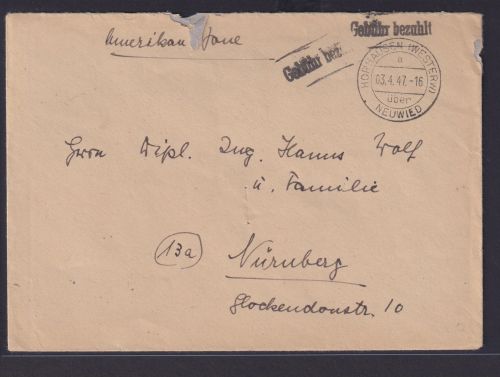 Gebühr bezahlt
Amerikan. Zone
Gebühr bez
HORHAUSEN (WESTERW)
a
03.4.47.-16
über
NEUWIED
Herrn Dipl. Ing. Hanns Wolf
u. Familie
13a
Nürnberg
Glockendonstr. 10